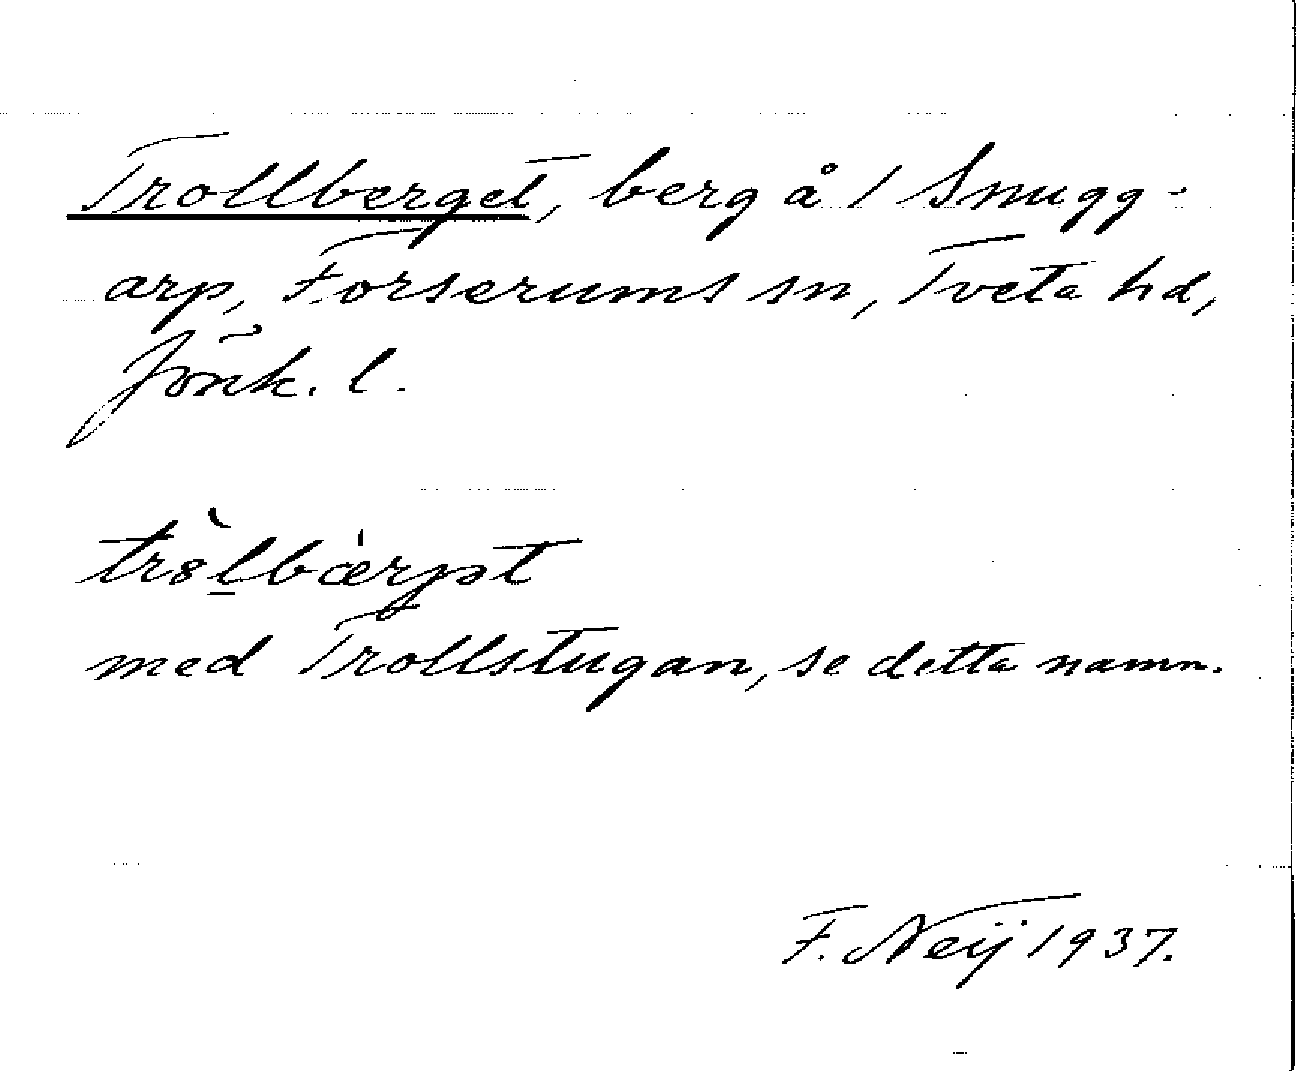 Trollberget, berg å 1 Snugg-
arp, Forserums sn, Tveta hd,
Jönk. l.
trò̱lbæ̀rjət
med Trollstugan, se detta namn.
F. Neij 1937.